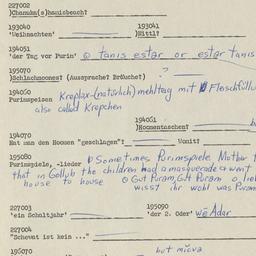 227002
)Chamám(s)hausbesch?
193040 193041
'Weihnachten' )Nittl?
194051
'der Tag vor Purim' ⓐ tanis estər or estər tanis
195070 ?
)Schlachmones? (Aussprache? Bräuche?)
194060
Purimspeisen Kreplax-(natürlich) mehltag mit Fleischfüllu
also called Krepchen
194061
)Homentaschen? h
194070
Hat man den Homon "geschlagen"? Womit?
195080
Purimspiele, -lieder Sometimes Purimspiele. Mother
that in Gollub the children had a masquerade & went
house to house ⓐ Gut Puram, Gut Puram o lieb
wisst ihr wohl was Puram
227003 195090
'ein Schaltjahr' 'der 2. Oder' we Adar
227004
"Schewat ist kein ..."
196070 but